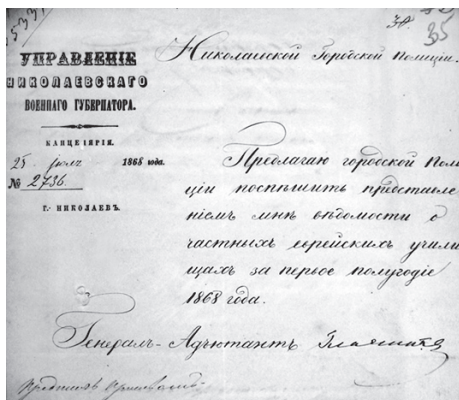 35
УПРАВЛЕНІЕ
НИКОЛАЕВСКАГО
ВОЕННАГО ГУБЕРНАТОРА.
КАНЦЕЛЯРІЯ.
25 1868 года.
№ 2736
г. НИКОЛАЕВЪ.
Николаевской Городской Полиціи.
Предлагаю городской Поли
ціи поспѣшить представле
ніемъ мнѣ вѣдомости о
частныхъ еврейскихъ учили
щахъ за первое полугодіе
1868 года.
Генералъ-Адъютантъ